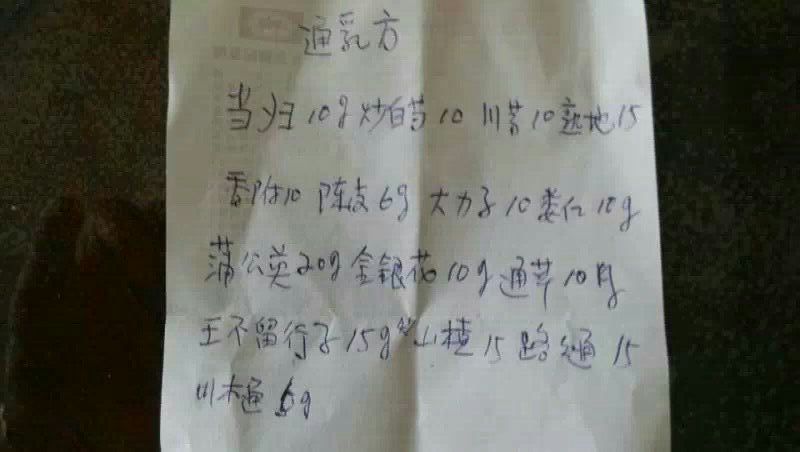 通乳方
当归10g 炒白芍10 川芎10 熟地15
香附10 陈皮6g 大力子10 娄仁10g
蒲公英20g 金银花10g 通草10g
王不留行子15g 炒山楂15 路路通15
川木通6g